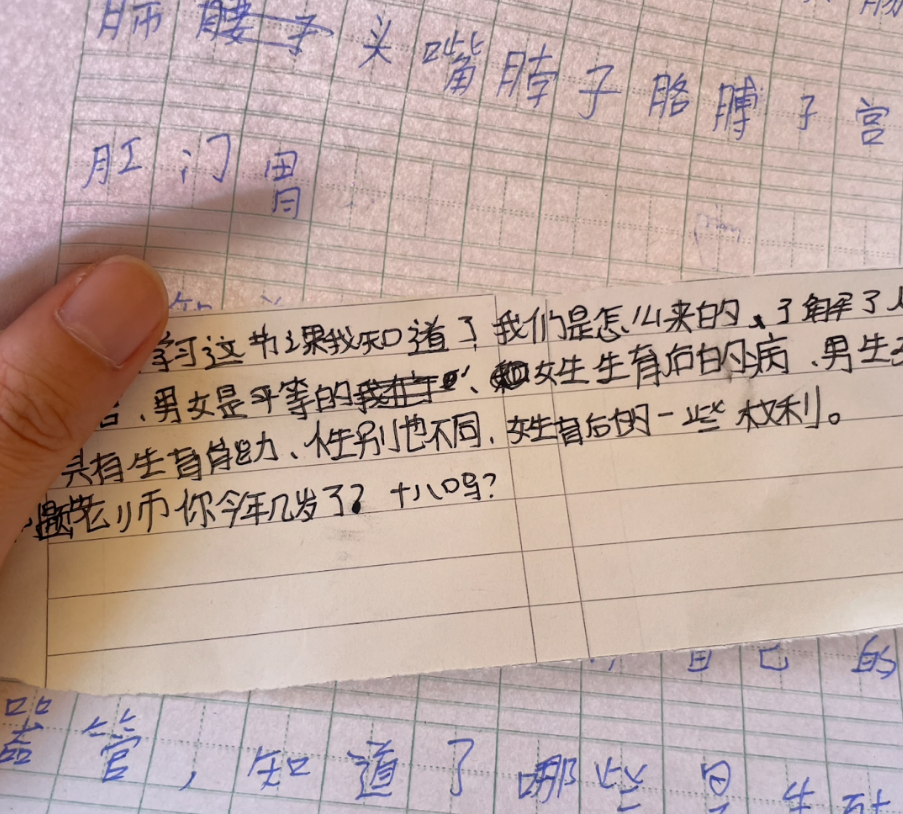 头嘴脖子胳膊子宫
肛门胃
学习这节课我知道了我们是怎么来的、了解了
、男女是平等的、女生生育后的病、男生
具有生育能力、性别也不同、女生育后的一些权利。
老师你今年几岁了？十八吗？
自己的
器管，知道了哪些是